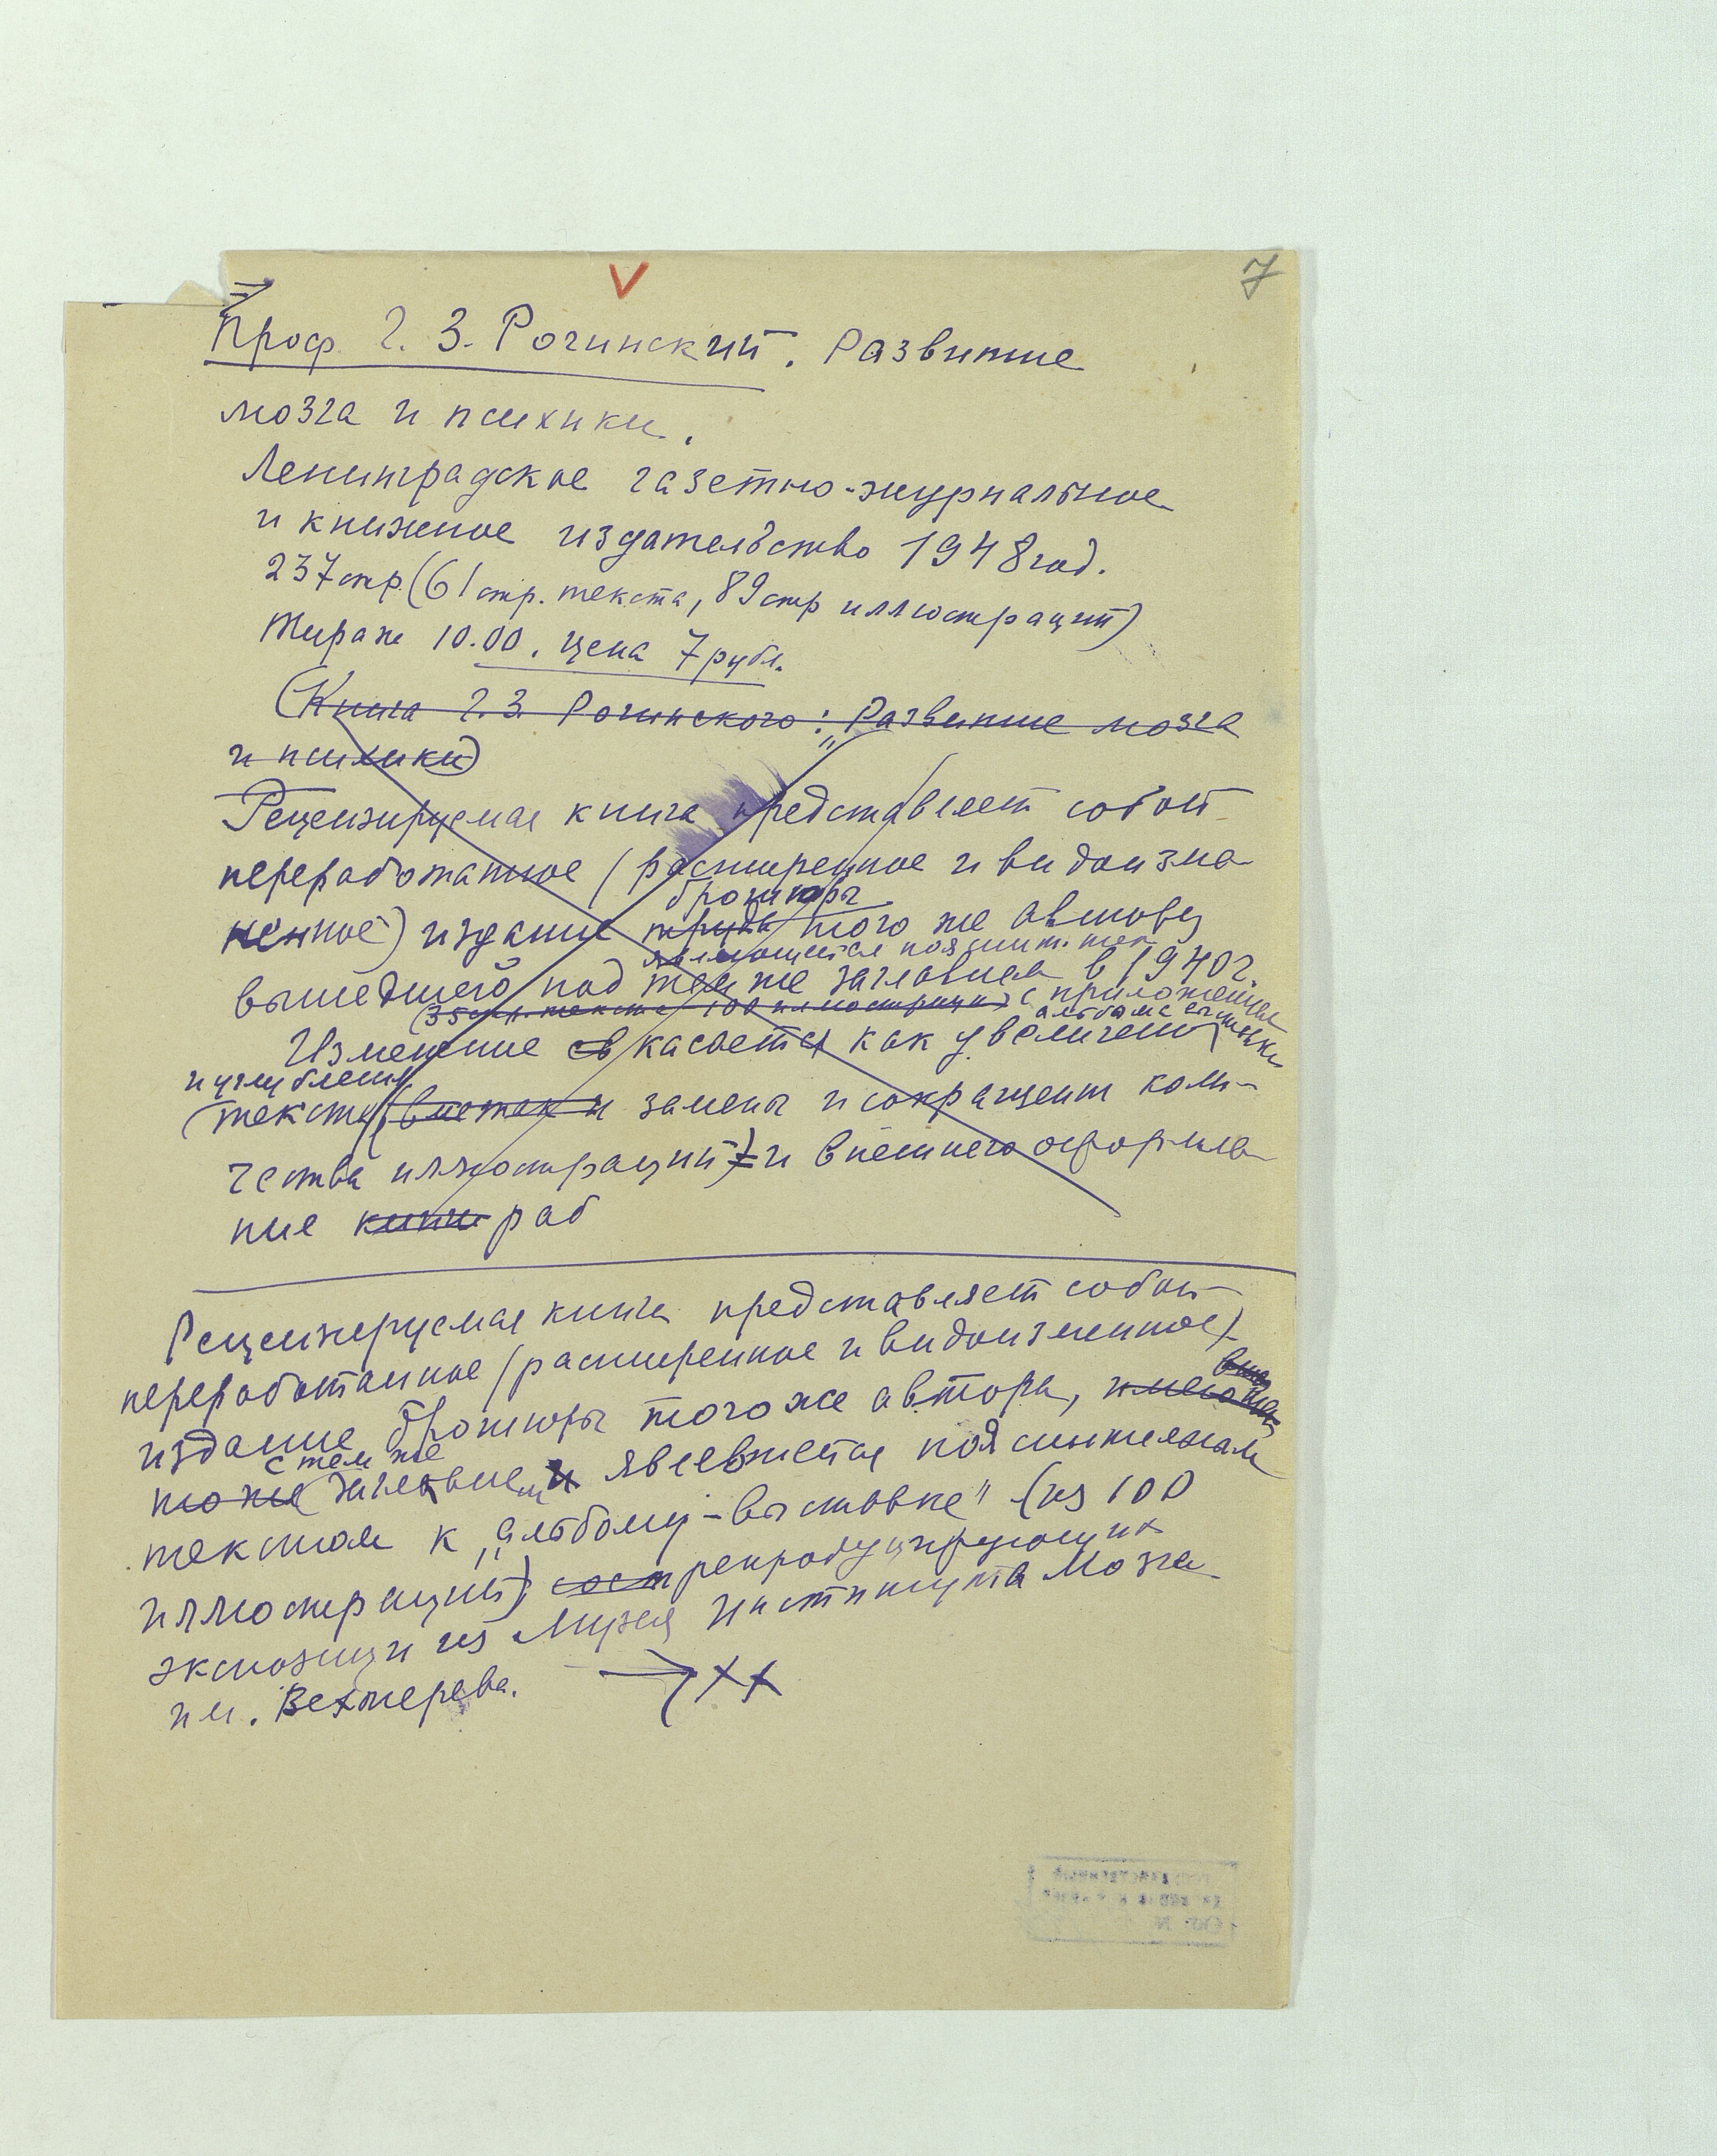 7
Проф. Г. З. Рогинский. Развитие
мозга и психики.
Ленинградское газетно-журнальное
и книжное издательство 1948 год.
237 стр. (61 стр. текста, 89 стр иллюстраций)
Тираж 10.00. цена 7 рубл.
(Книга Г. З. Рогинского: „Развитие мозга
и психики)
Рецензируемая книга представляет собой
переработанное (расширенное и видоизме-
ненное) издание
брошюры
труда того же автора,
вышедшего под тем же заглавием в 1940 г.
(35 стр. текста 100 иллюстраций) с приложением
альбома выставки
Изменение касается как увеличения
и углубления
текста, замены и сокращения коли-
чества иллюстраций) и внешнего оформле-
ние книги раб
Рецензируемая книга представляет собой
переработанное (расширенное и видоизменное)
издание брошюры того же автора,
с тем же
то же заглавием явившейся пояснительным
текстом к „альбому-выставке" (из 100
иллюстраций) сост репродуцирующих
экспозиции из Музея Института Мозга
им. Бехтерева. → ХХ